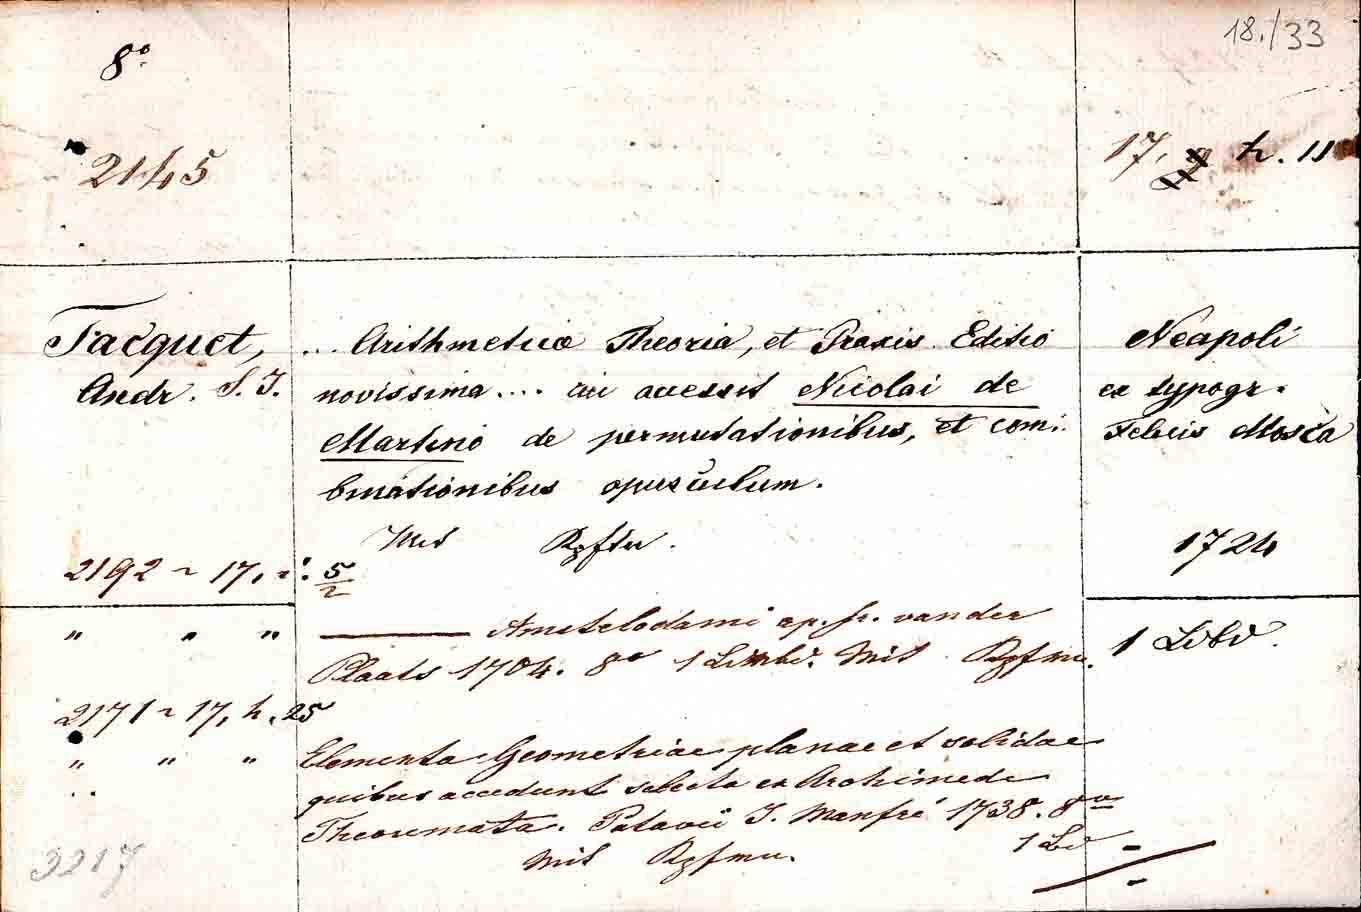 18./33
8º
2145
17. h. 11
Tacquet,
Andr. S. J.
... Arithmeticae Theoria, et Praxis. Editio
novissima .... cui accessit Nicolai de
Martino de permutationibus, et comi-
binationibus opusculum.
Mit Kpfrn.
Neapoli
ex typogr.
Felicis Mosca
1724
1 Lbd.
2192 ~ 17, i. 5/2
" " "
Amstelodami ap. fr. van der
Plaats 1704. 8º 1 Lmbd. Mit Kpfrn.
2171 ~ 17, h. 25
" " "
Elementa Geometriae planae et solidae
quibus accedunt selecta ex Archimede
Theoremata. Patavii J. Manfré 1738. 8º
1 Ld
Mit Kpfrn.
3217